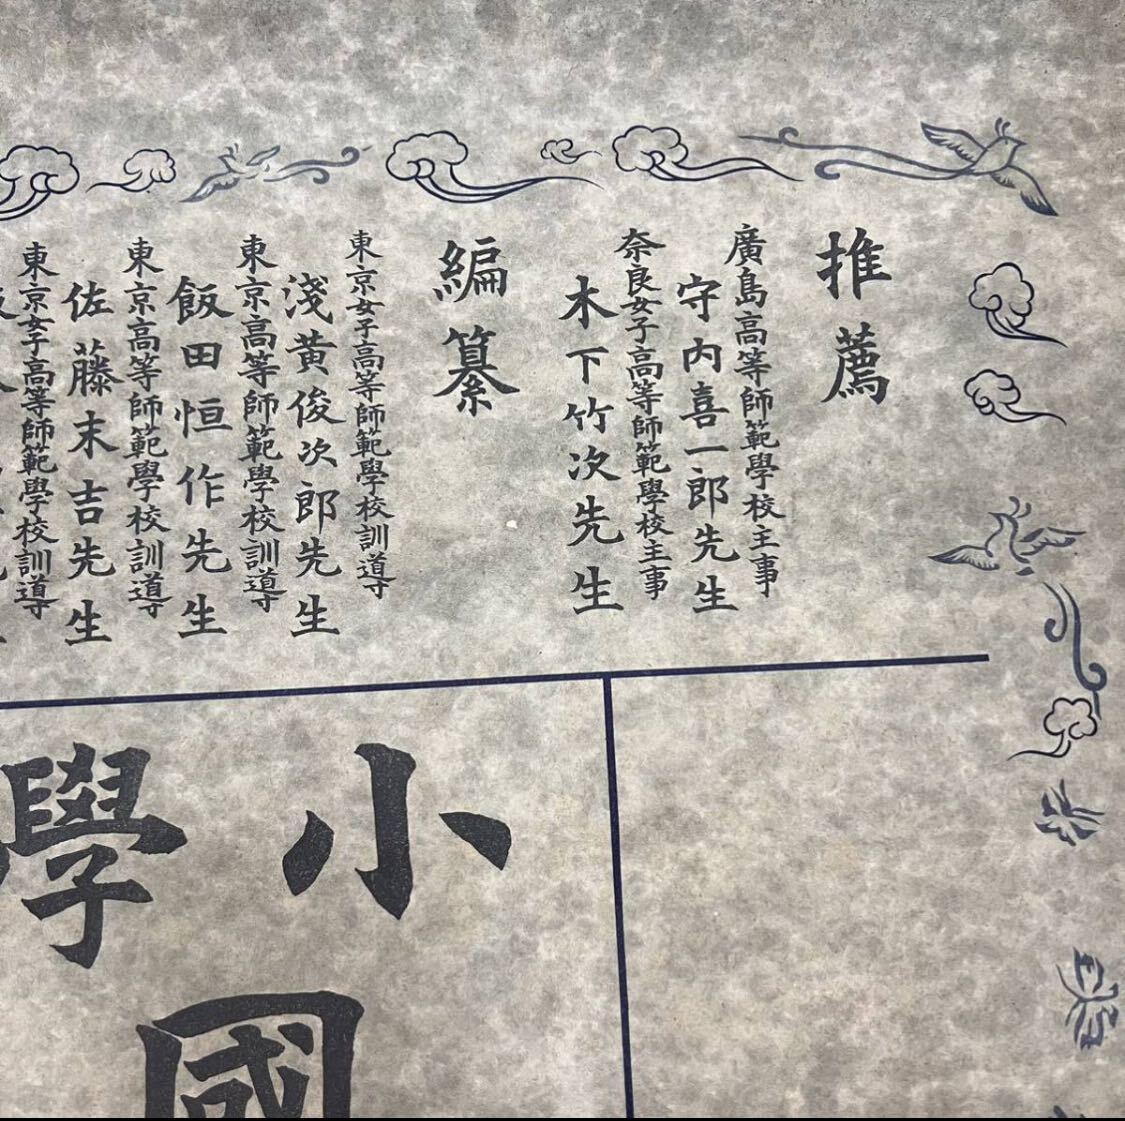 推薦
廣島高等師範學校主事
守内喜一郎先生
奈良女子高等師範學校主事
木下竹次先生
編纂
東京女子高等師範學校訓導
淺黃俊次郎先生
東京高等師範學校訓導
飯田恒作先生
東京高等師範學校訓導
佐藤末吉先生
東京女子高等師範學校訓導
小學
國